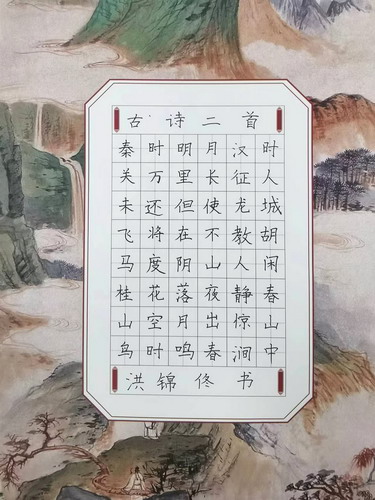 古诗二首
秦时明月汉时
关万里长征人
未还但使龙城
飞将在不教胡
马度阴山人闲
桂花落夜静春
山空月出惊山
鸟时鸣春涧中
洪锦佟书